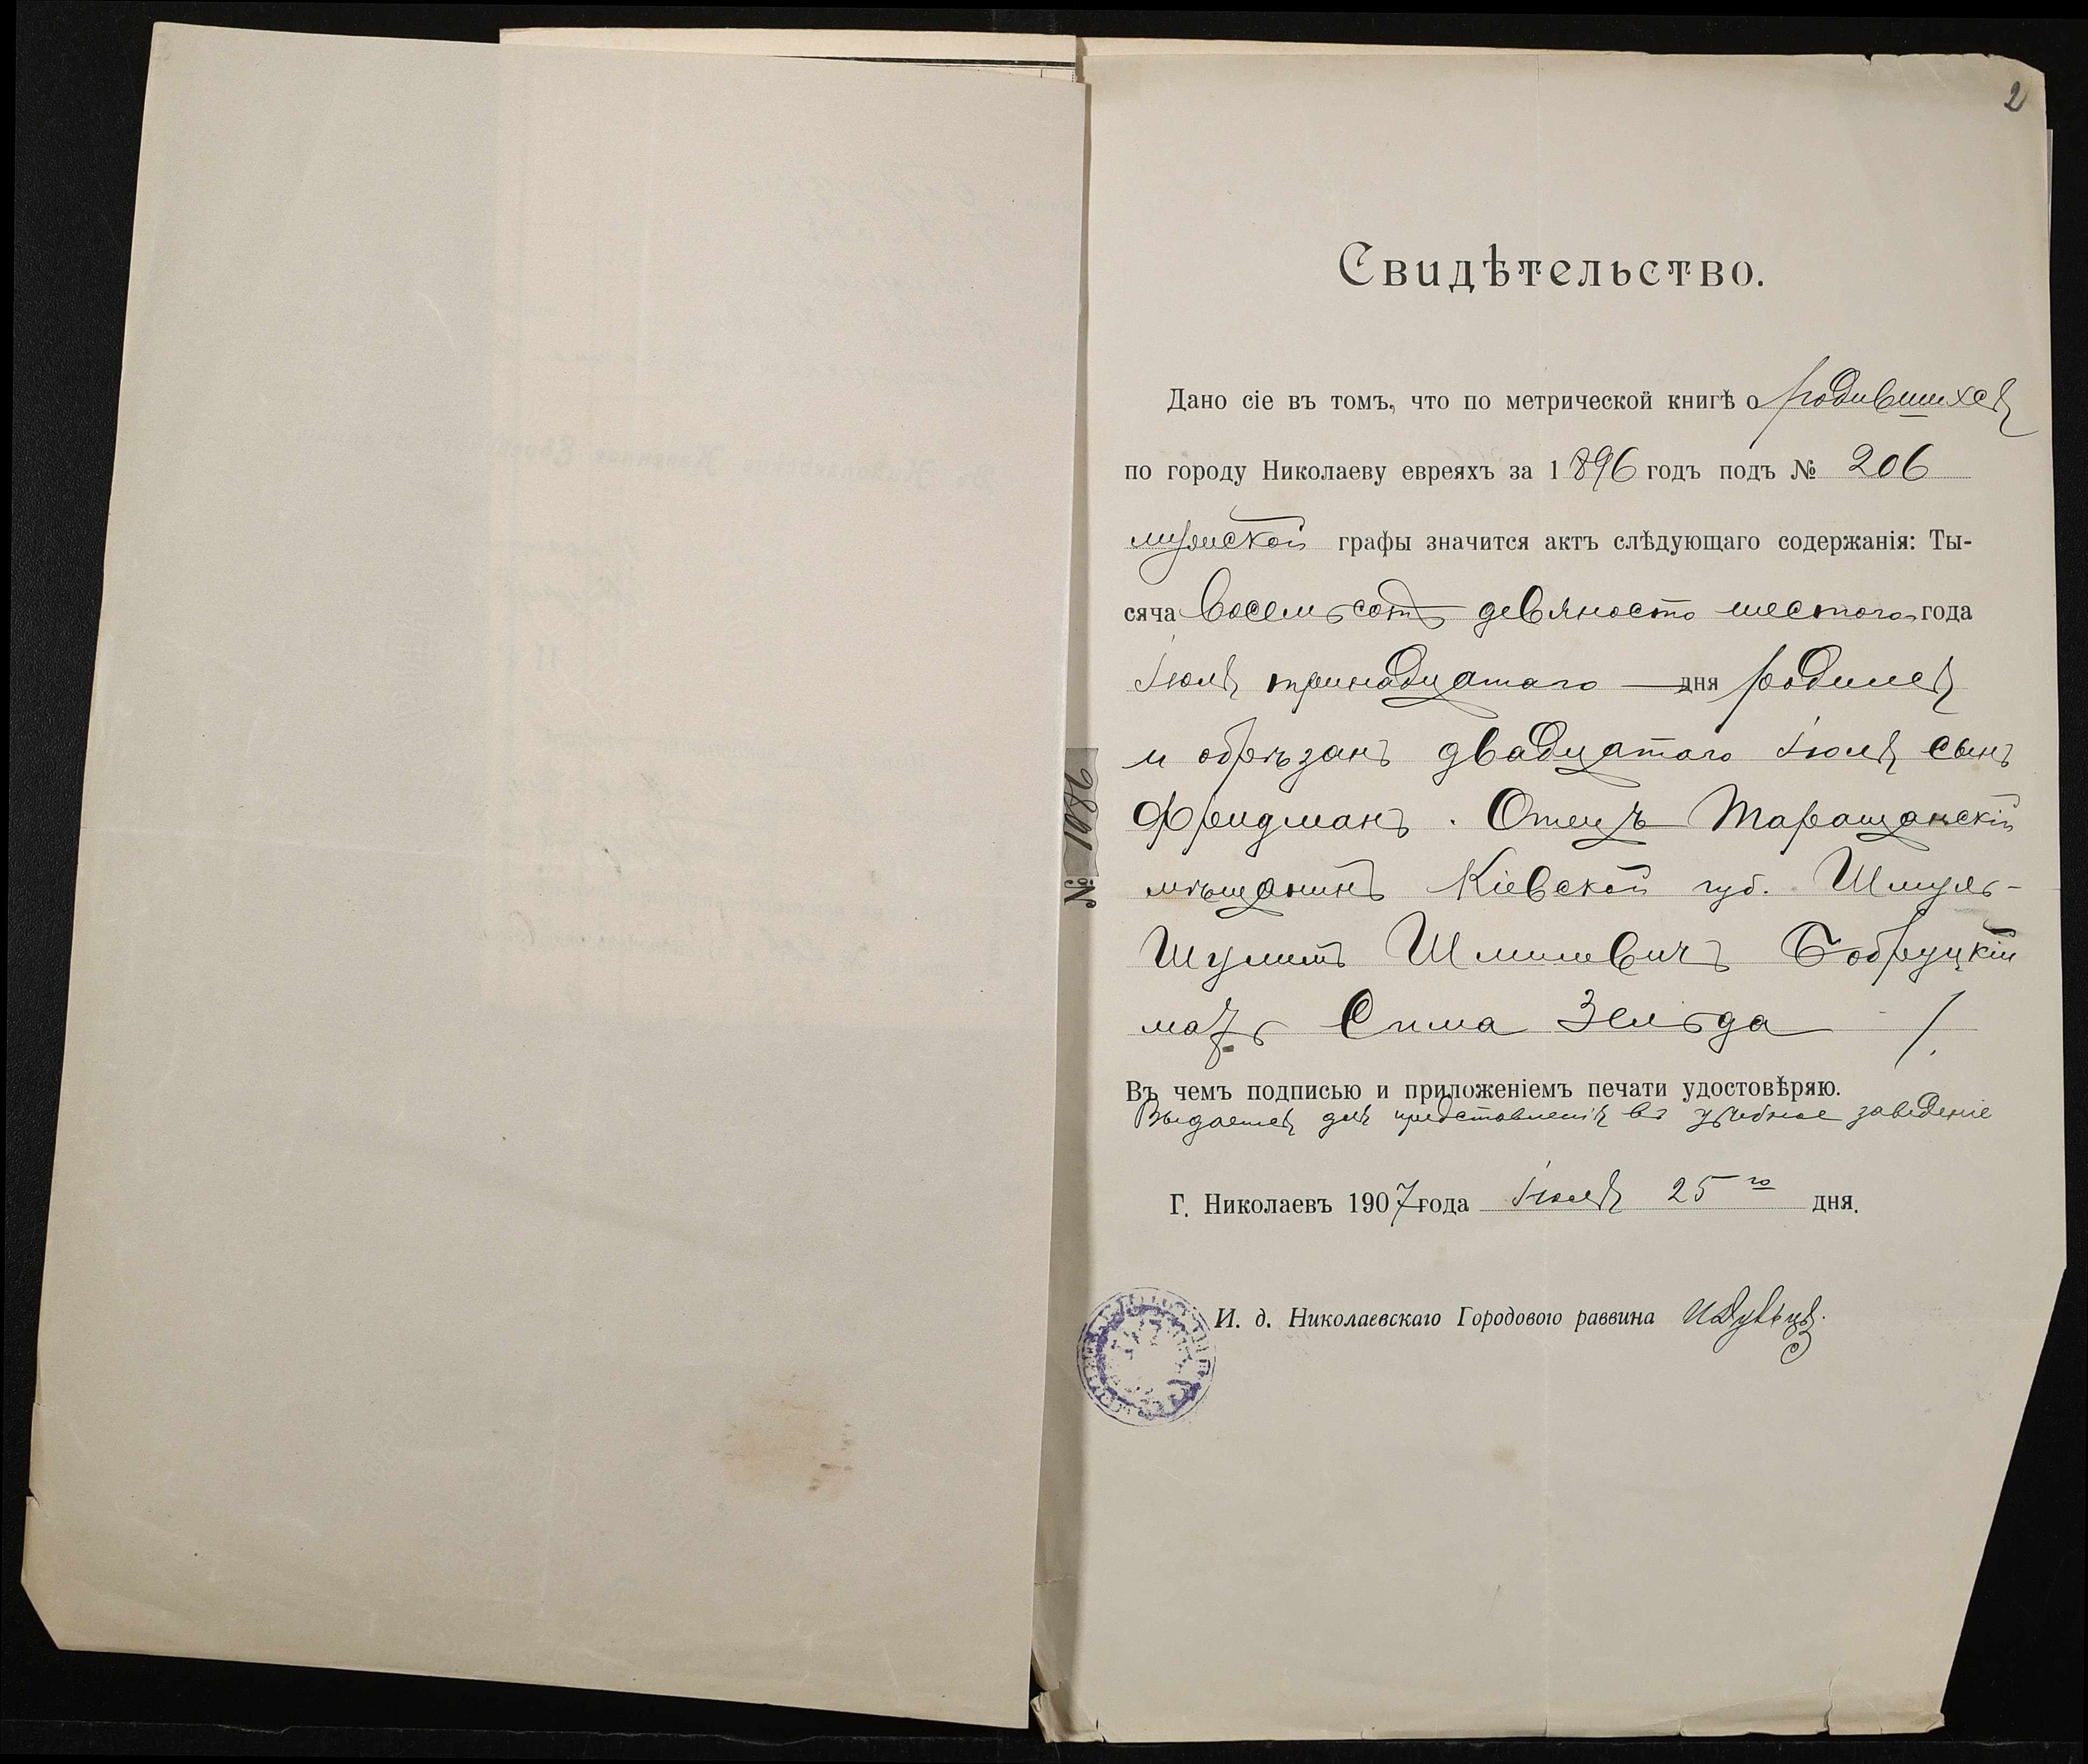 2
Свидѣтельство.
Дано сіе въ томъ, что по метрической книгѣ о родившихся
по городу Николаеву евреяхъ за 1896 годъ подъ № 206
мужской графы значится актъ слѣдующаго содержанія: Ты-
сяча восемьсотъ девяносто шестого года
Іюля тринадцатаго дня родился
и обрѣзанъ двадцатаго Іюля сынъ
Фридманъ. Отецъ Таращанскій
мѣщанинъ Кіевской губ. Шмуль-
Шулимъ Шмилевичъ Бобруцкій
мать Сима Зельда
Въ чемъ подписью и приложеніемъ печати удостовѣряю.
Выдается для представленія въ учебное заведеніе
Г. Николаевъ 1907 года Іюля 25го дня.
И. д. Николаевскаго Городового раввина
№ 1086